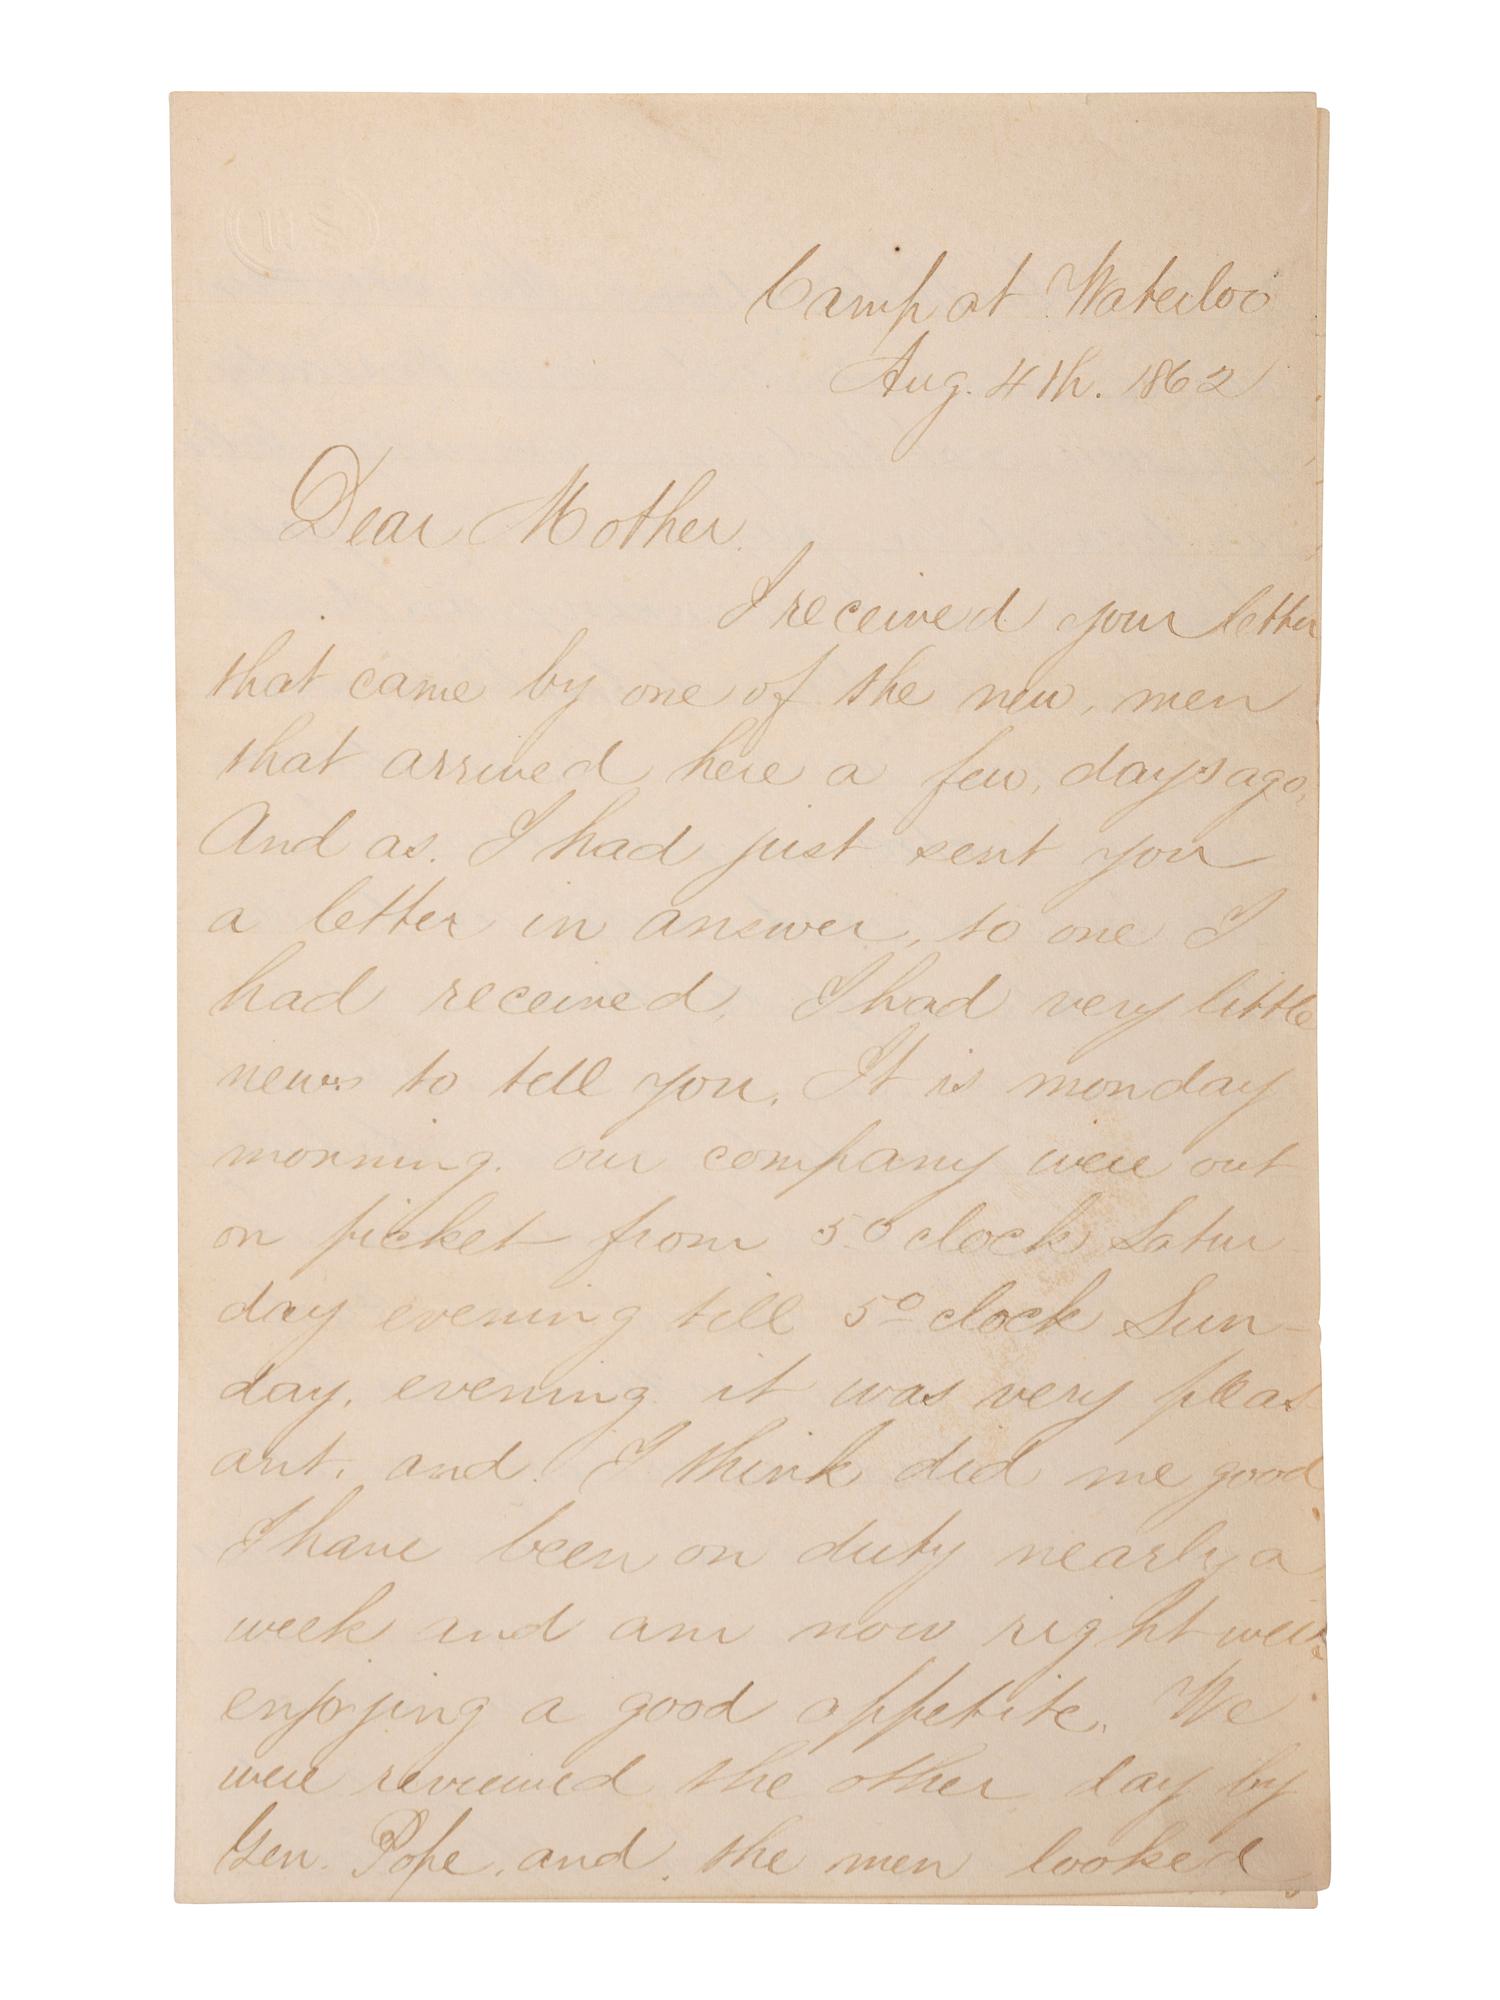 Camp at Waterloo
Aug. 4th. 1862
Dear Mother.
I received your letter
that came by one of the new, men
that arrived here a few, days ago,
And as. I had just sent you
a letter in answer, to one I
had received, I had very little
news to tell you. It is monday
morning. our company were out
on picket from 5 o clock Satur
day evening till 5 o clock Sun-
day. evening it was very pleas
ant. and. I think did me good
I have been on duty nearly a
week and am now right well
enjoying a good appetite. We
were reviewed the other day by
Gen. Pope, and, the men looked